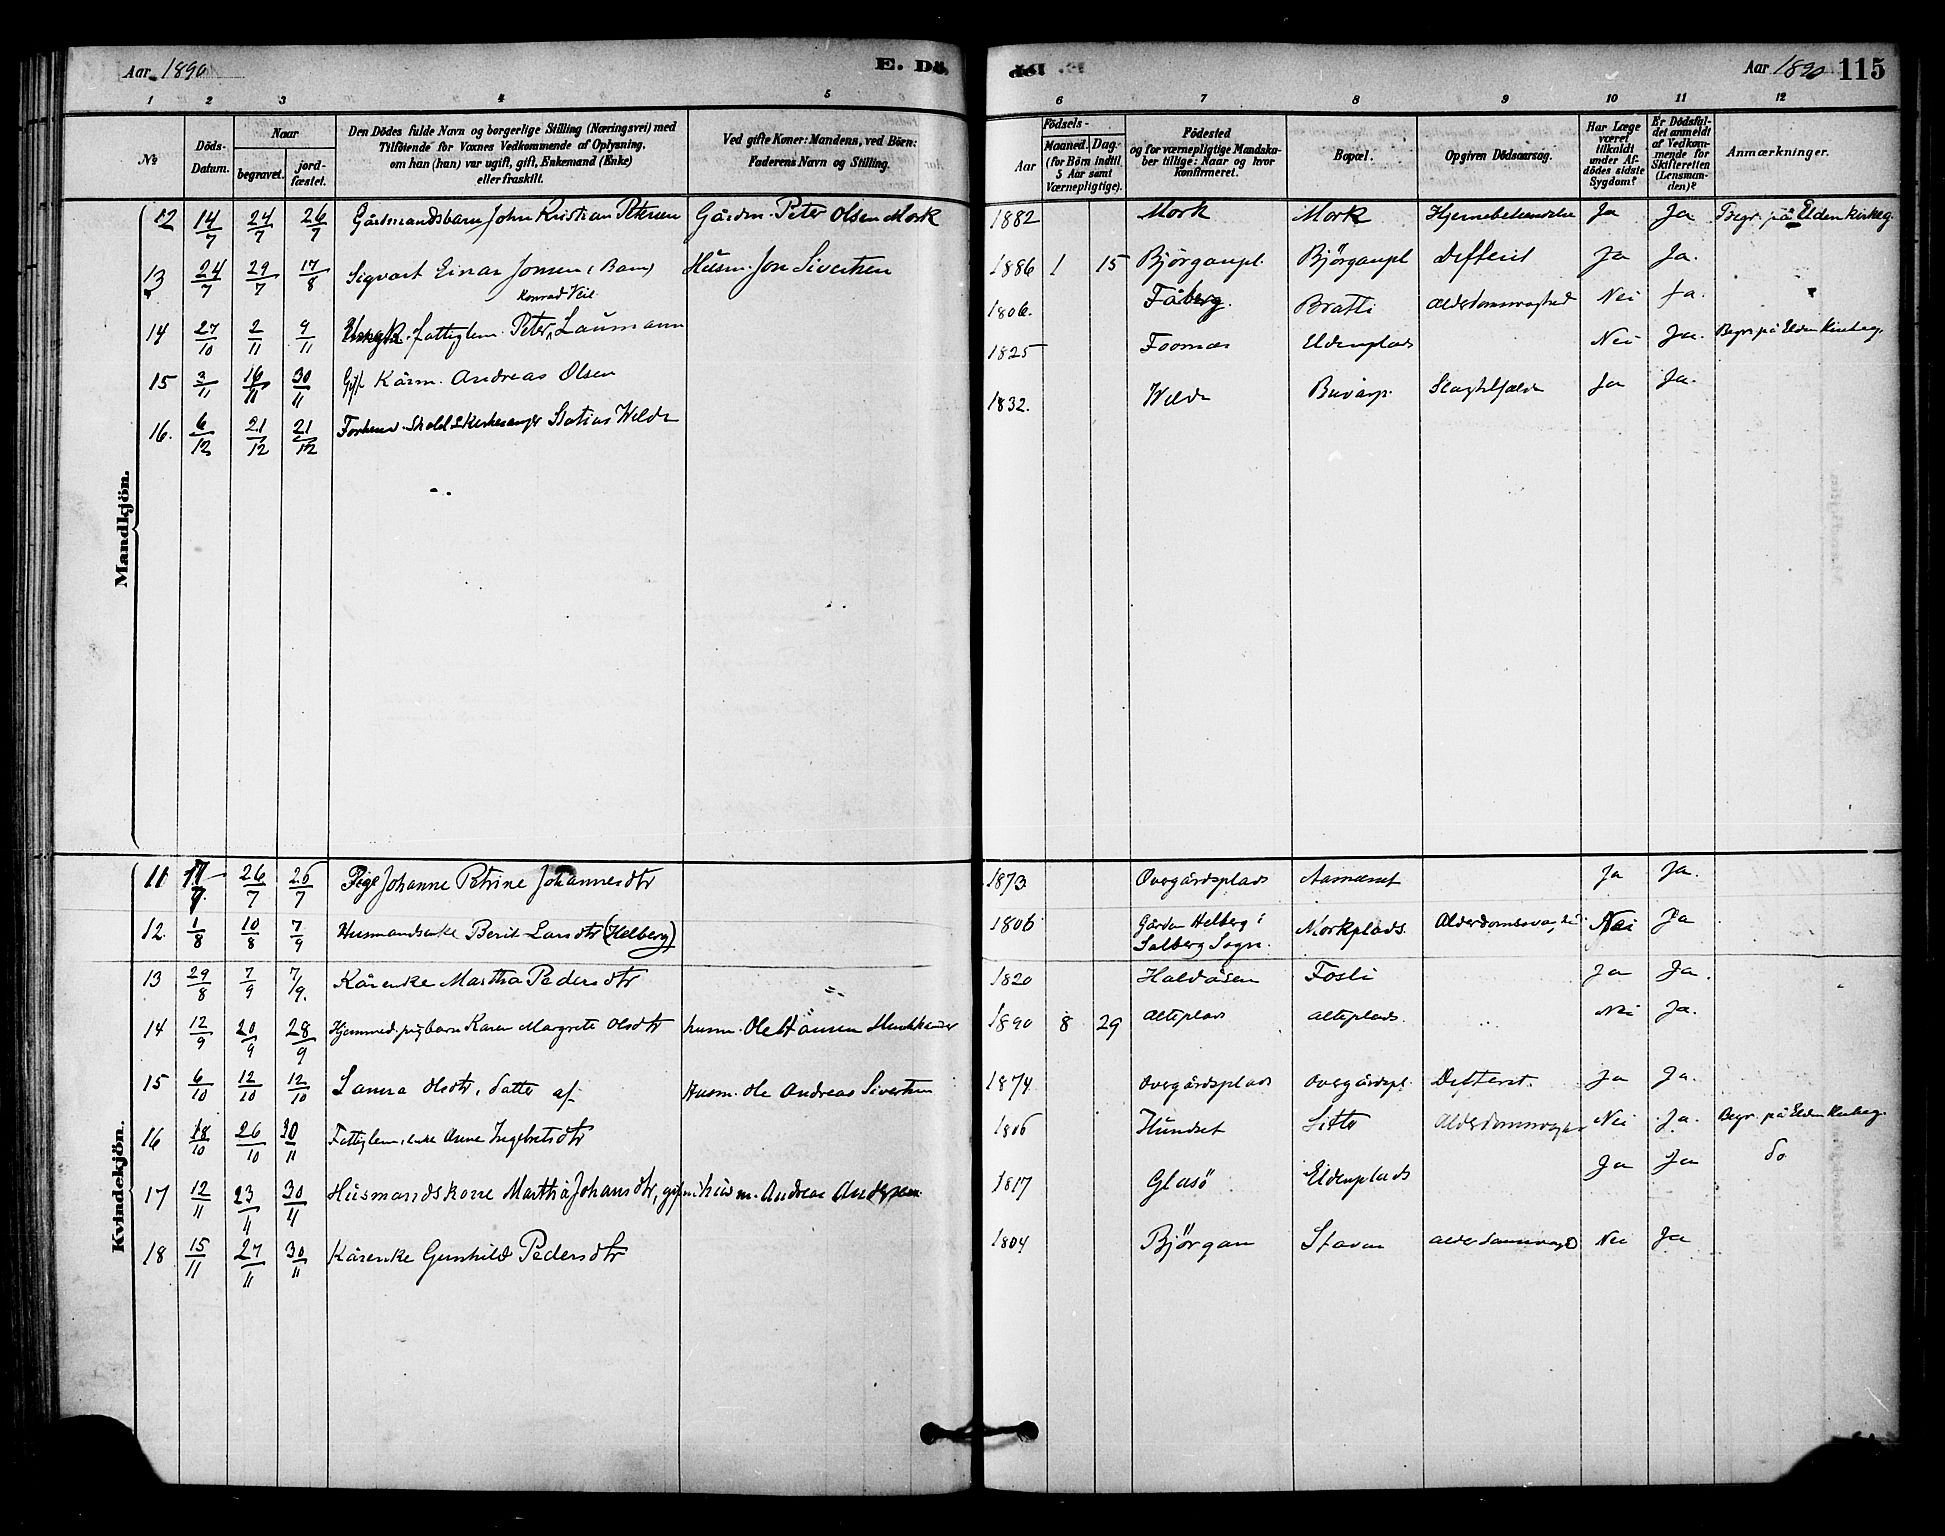 Aar 1890 E. Dö
1 2 3 4 5
No Döds-Datum. Naar begravet. jord-fæstet.
Den Dödes fulde Navn og borgerlige Stilling (Næringsvei) med
Tilföiende for Voxnes Vedkommende af Oplysning,
om han (hun) var ugift, gift, Enkemand (Enke)
eller fraskilt.
Ved gifte Koner: Mandens, ved Börn:
Faderens Navn og Stilling.
Mandkjön.
12 14/7 24/7 26/7 Gårdmandsbarn John Kristian Petersen Gårdm. Peter Olsen Mork
13 24/7 29/7 17/8 Sigvart Einar Jonsen (Barn) Husm. Jon Sivertsen
Konrad Veil
14 27/10 2/11 9/11 fattiglem Peter Laumann
15 3/11 16/11 30/11 Gift Kårm. Andreas Olsen
16. 6/12 21/12 21/12 Forhenv. Skolel. & Kirkesanger Statius Welde
Kvindekjön.
11 17/7 26/7 26/7 Pige Johanne Petrine Johannesdtr
12. 1/8 10/8 7/9 Husmandsenke Berit Larsdtr (Helberg)
13 29/8 7/9 7/9. Kårenke Martha Pedersdtr
14 12/9 20/9 28/9 Hjemmed. pigebarn Karen Margrete Olsdtr husm. Ole Hansen
15 6/10 12/10 12/10 Laura Olsdtr, datter af Husm. Ole Andreas Sivertsen
16 18/10 26/10 30/11 Fattiglem, enke Anne Ingebretsdtr
17 12/11 23/11 30/11 Husmandskone Martha Johansdtr, gift m. husm. Andreas Andersen
18 15/11 27/11 30/11 Kårenke Gunhild Pedersdtr
Aar 1890 115
6 7 8 9 10 11 12
Födsels-
Aar Maaned. Dag. (for Börn indtil 5 Aar samt Værnepligtige).
Födested og for værnepligtige Mandskaber tillige: Naar og hvor konfirmeret.
Bopæl.
Opgiven Dödsaarsag.
Har Læge været tilkaldt under Afdödes sidste Sygdom?
Er Dödsfaldet anmeldt af Vedkommende for Skifteretten (Lensmanden)?
Anmærkninger.
1882 Mork Mork Hjernebetændelse Ja Ja Begr. på Elden kirkeg.
1886 1 15 Björganpl. Björganpl Difterit Ja Ja.
1806. Fåberg. Bratli Alderdomssvaghed Nei Ja.
1825 Foosnæs Eldenplads Nei Ja. Begr. på Elden Kirkeg.
1832. Welde Buvarp. Slagtilfælde Ja Ja.
1873 Overgårdsplads Aasnæsset Ja Ja.
1806 Gården Helberg i Salberg Sogn. Morkplads. Alderdomssvaghed Nei Ja
1820 Haldåsen Fosli Ja Ja.
1890 8 29 Alteplads Alteplads. Nei Ja.
1874 Overgårdsplads Overgårdspl. Difterit. Ja Ja.
1806 Hundset Sitter Alderdomssvagh. Nei Ja. Begr. på Elden Kirkeg.
1817 Glasö Eldenplads Ja Ja do
1804 Björgan Stavan Nei Ja